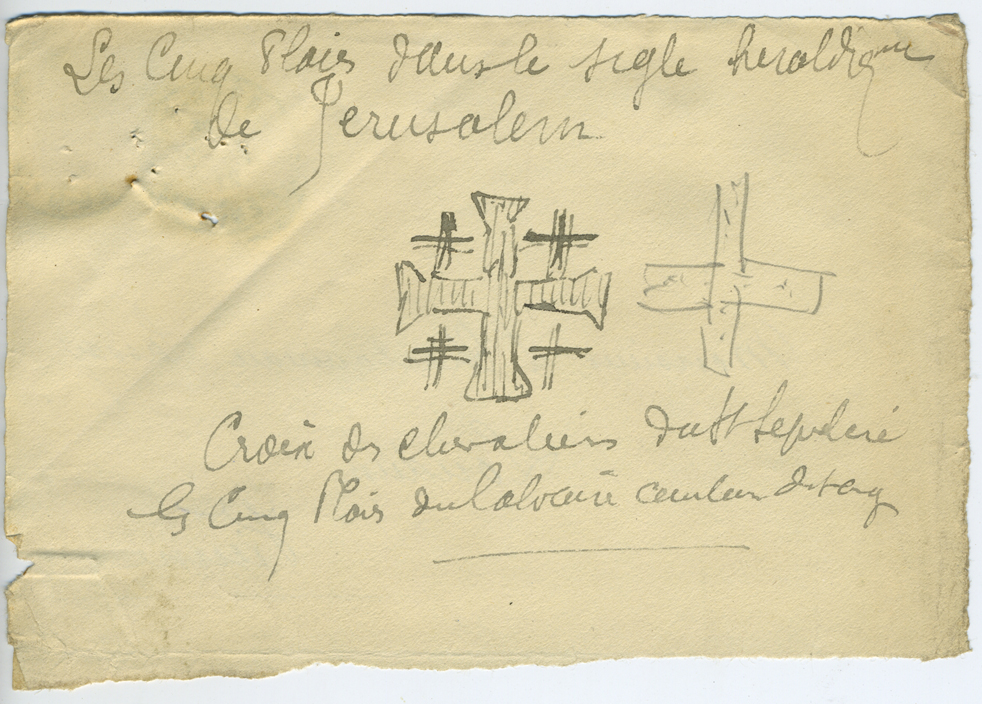 Les Cinq Plaies dans le sigle heraldique
de Jerusalem
Croix des chevaliers du St Sepulcre
les Cinq Plaies du Calvaire couleur de sang